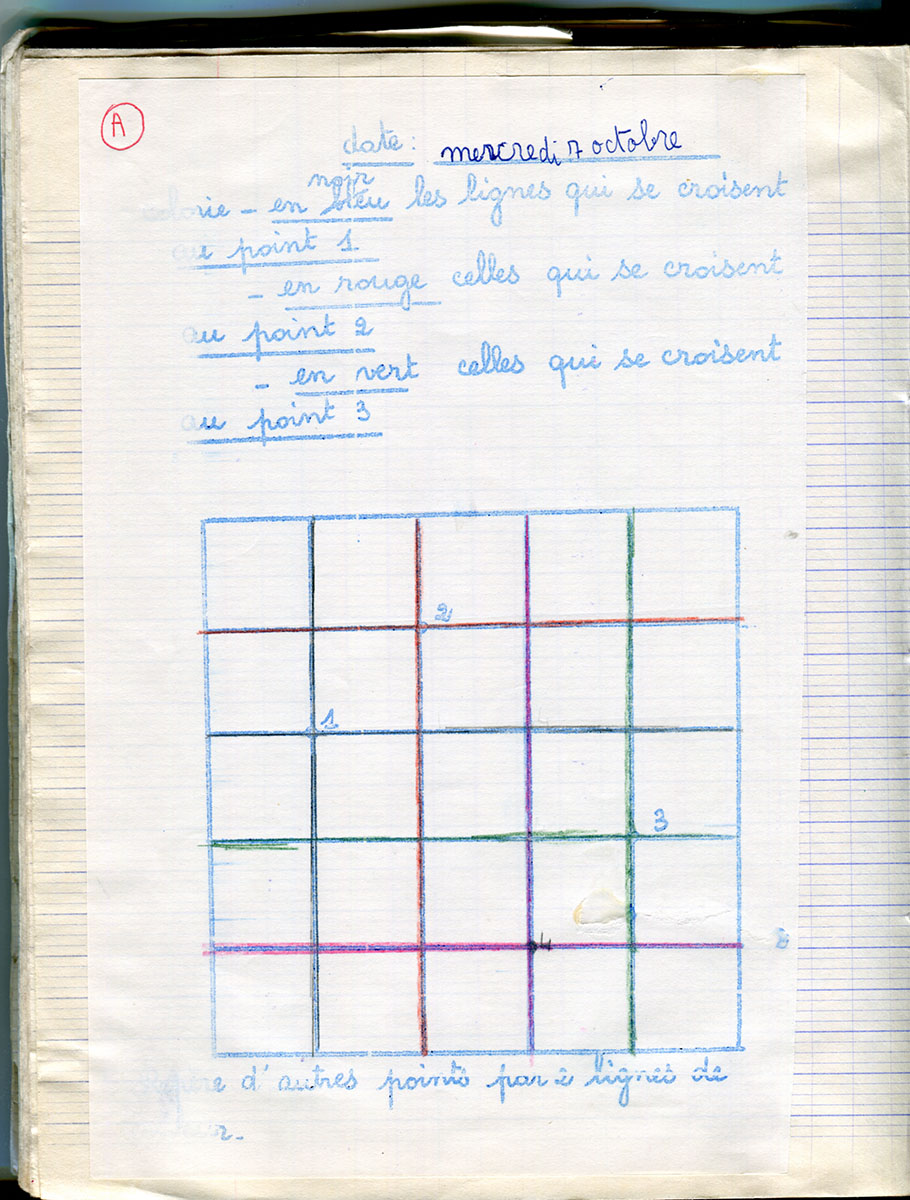 A
date : mercredi 7 octobre
noir
- en bleu les lignes qui se croisent
au point 1
- en rouge celles qui se croisent
au point 2
- en vert celles qui se croisent
au point 3
2
1
3
4
d'autres points par 2 lignes de